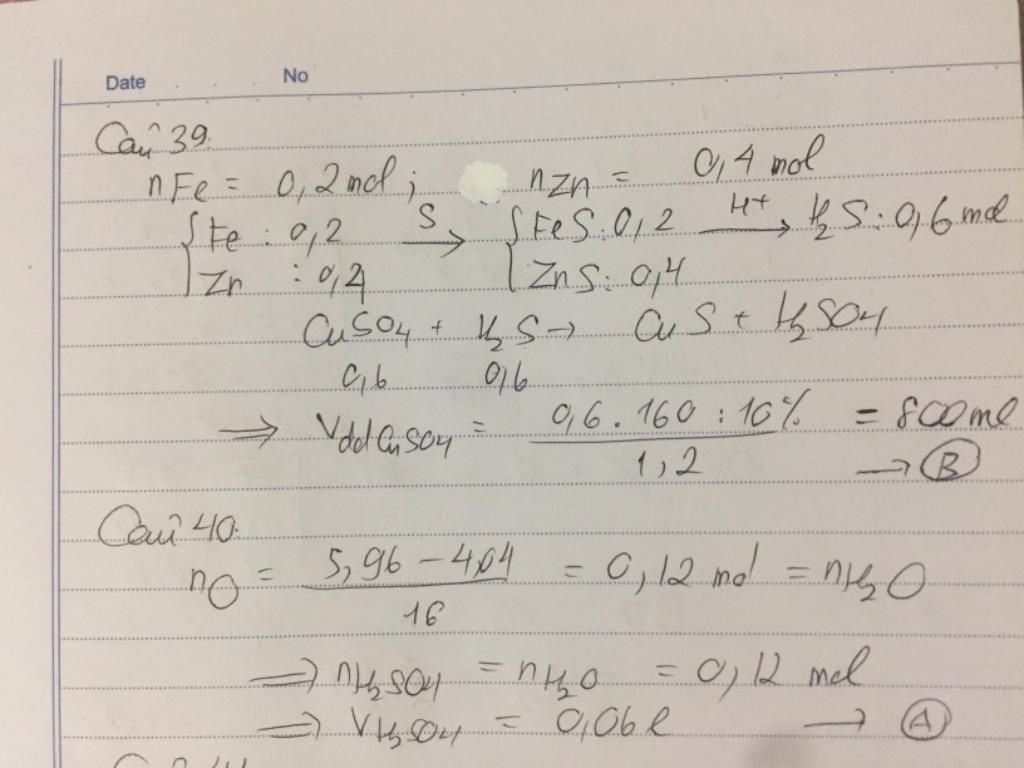 Date No
Câu 39.
nFe = 0,2 mol ; nZn = 0,4 mol
{ Fe : 0,2 S→ { FeS : 0,2 H+→ H2S : 0,6 mol
Zn : 0,4 ZnS : 0,4
CuSO4 + H2S → CuS + H2SO4
0,6 0,6
⇒ VddCuSO4 = 0,6 . 160 : 10% / 1,2 = 800 ml
→ B
Câu 40.
nO = 5,96 - 4,04 / 16 = 0,12 mol = nH2O
⇒ nH2SO4 = nH2O = 0,12 mol
⇒ VH2SO4 = 0,06 l → A